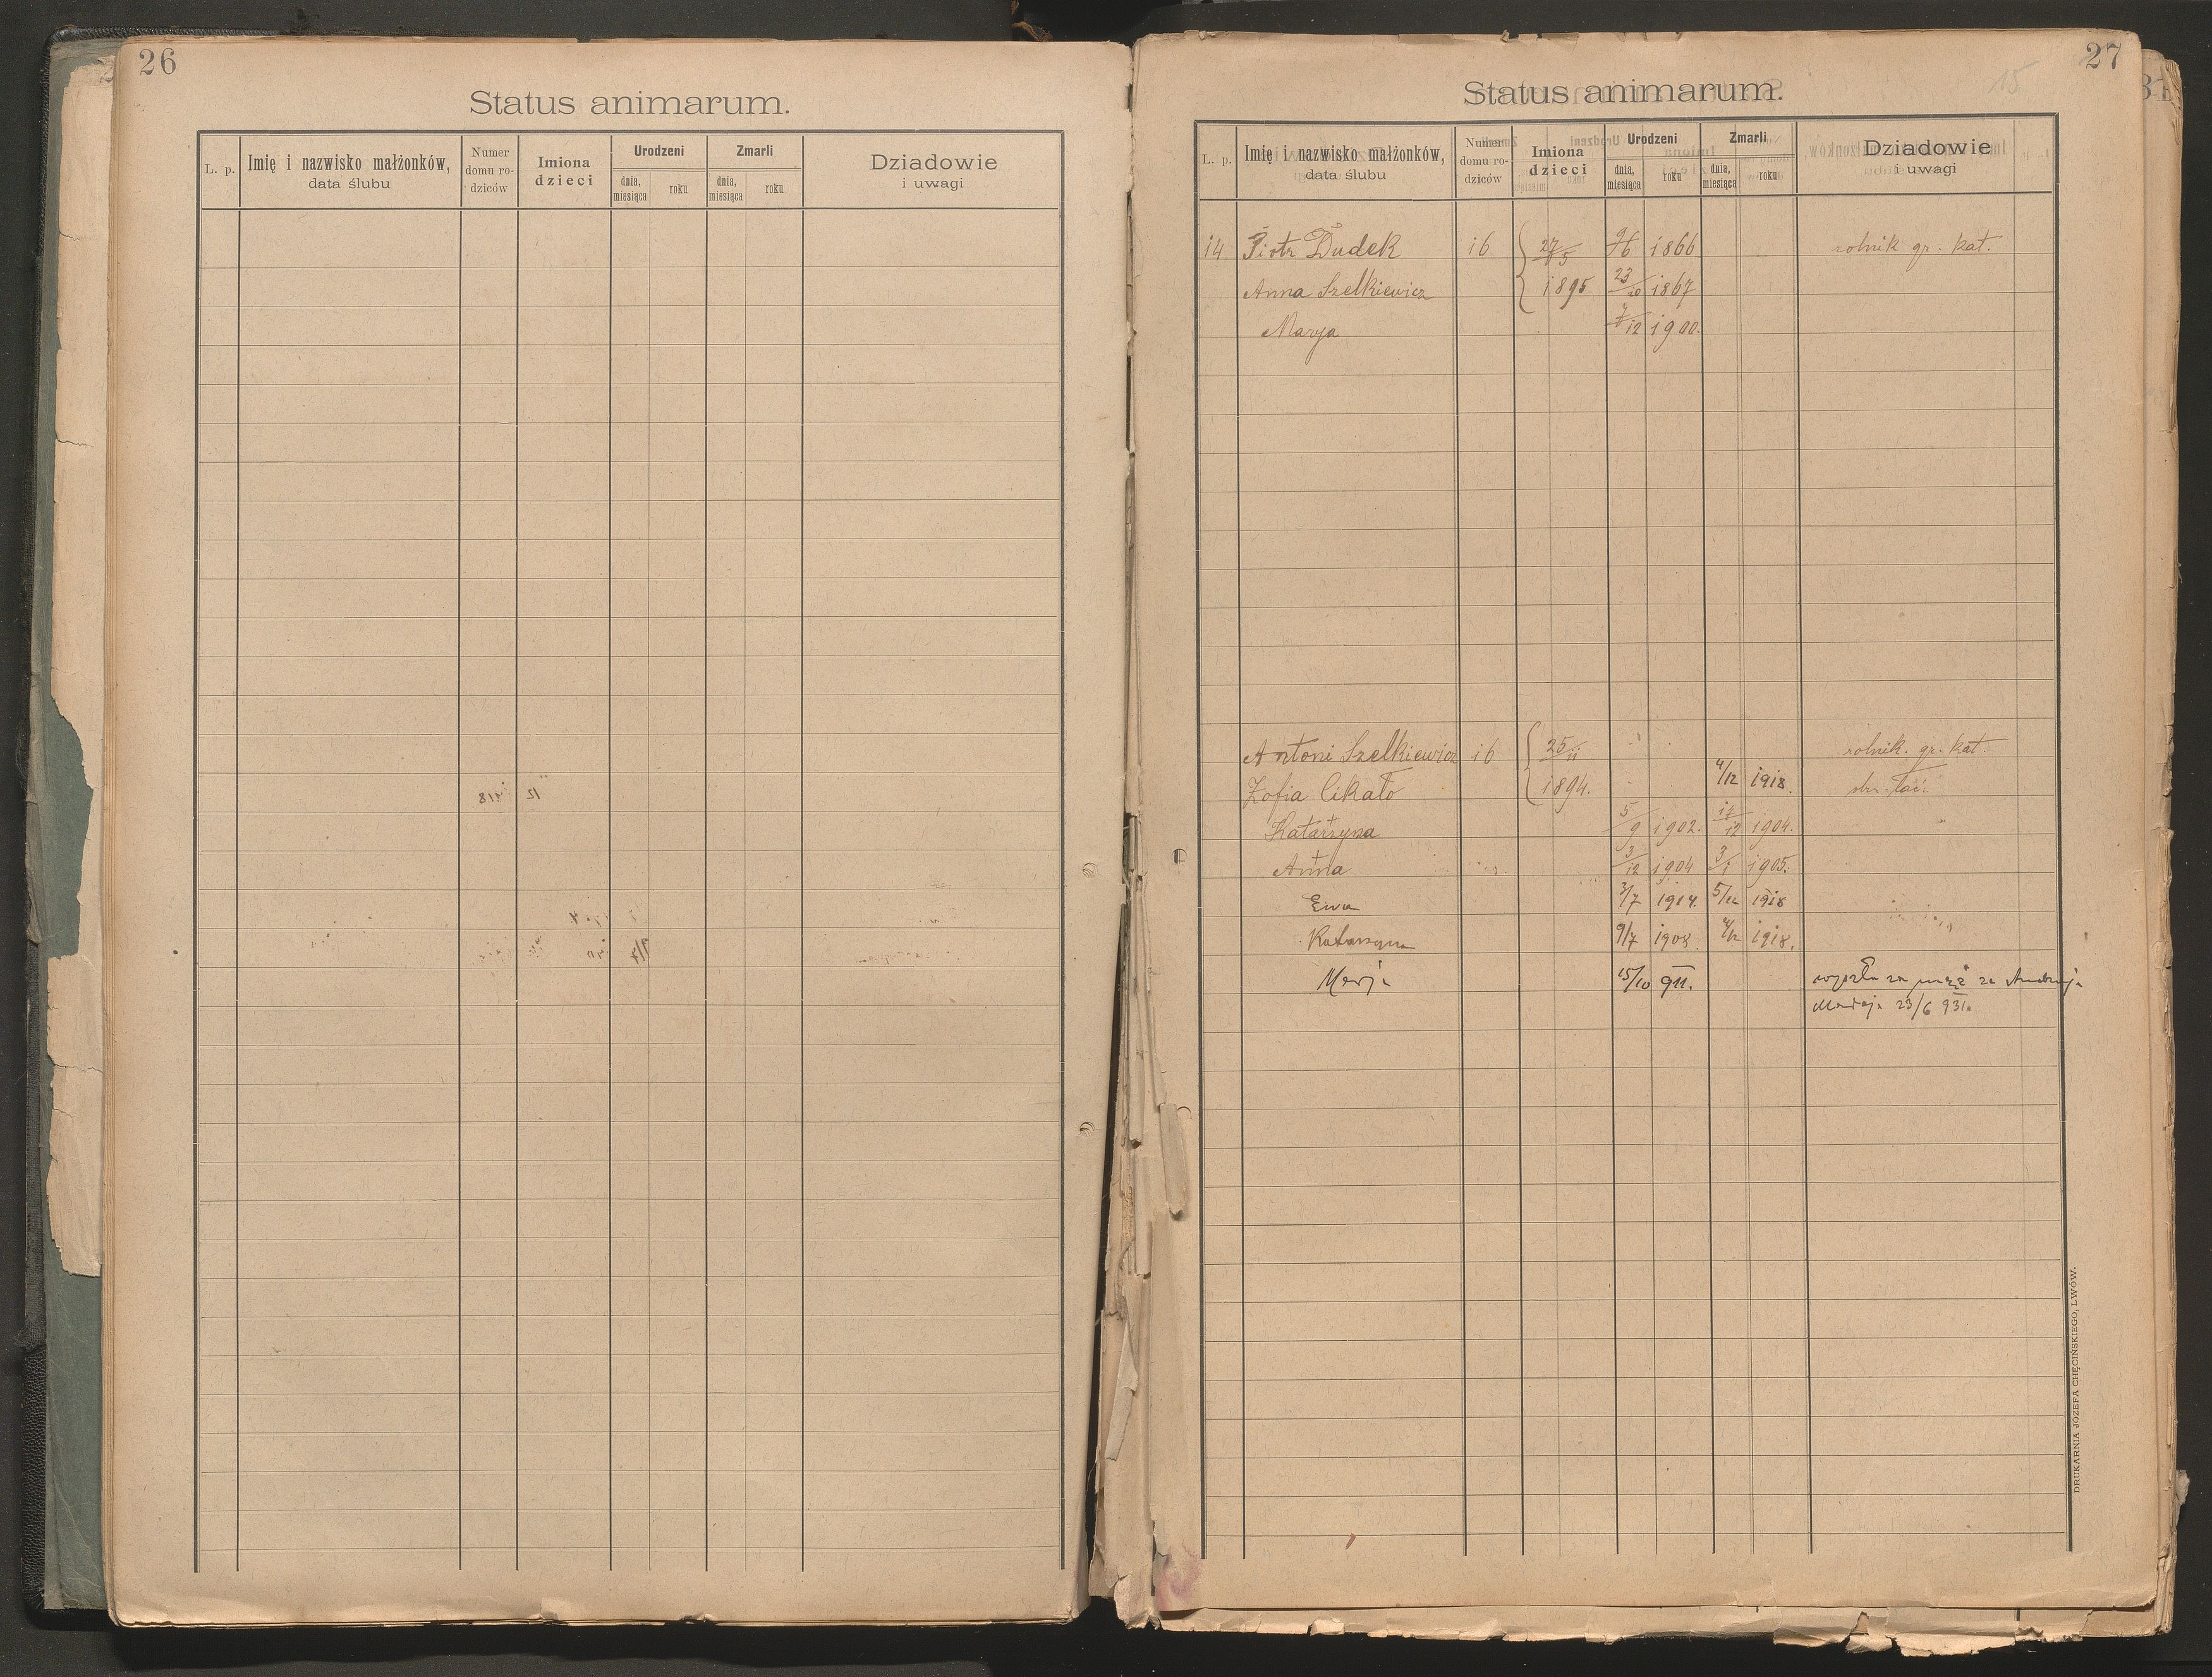 26
Status animarum.
L. p. Imię i nazwisko małżonków, data ślubu Numer domu rodziców Imiona dzieci Urodzeni dnia, miesiąca roku Zmarli dnia, miesiąca roku Dziadowie i uwagi
27
15
Status animarum.
L. p. Imię i nazwisko małżonków, data ślubu Numer domu rodziców Imiona dzieci Urodzeni dnia, miesiąca roku Zmarli dnia, miesiąca roku Dziadowie i uwagi
14 Piotr Dudek 16 27/5 9/6 1866 rolnik gr. kat.
Anna Szelkiewicz 1895 23/10 1867
Marya 12 1900.
Antoni Szelkiewicz 16 25/11 rolnik. gr. kat.
Zofia Cikało 1894. 4/12 1918.
Katarzyna 5/9 1902. 17/12 1904.
Anna 3/12 1904 3/1 1905.
Ewa 3/7 1914. 5/12 1918
Katarzyna 9/7 1908. 4/12 1918.
Marja 15/10 911. wyszła za mąż za Andrzeja
23/6 931.
DRUKARNIA JÓZEFA CHĘCIŃSKIEGO, LWÓW.
31